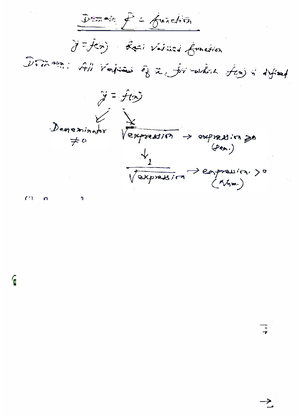 Domain of a function
y = f(x) - Real valued function
Domain: All values of x, for which f(x) is defined
y = f(x)
Denominator ≠ 0
√expression → expression ≥ 0
1/√expression → expression > 0